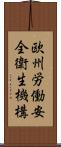 欧州労働安
全衛生機構